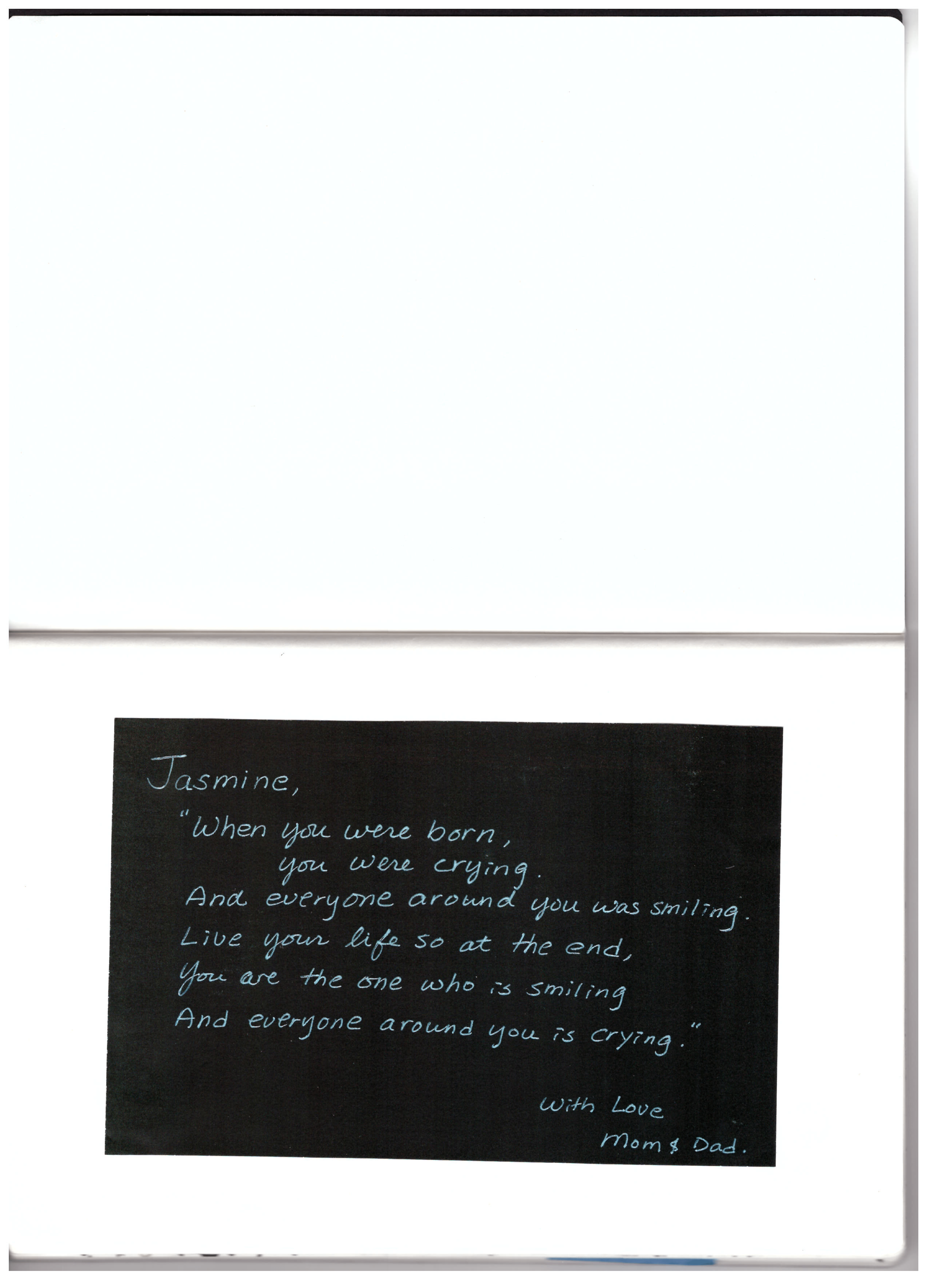 Jasmine,
"When you were born,
you were crying.
And everyone around you was smiling.
Live your life so at the end,
You are the one who is smiling
And everyone around you is crying."
With Love
Mom & Dad.